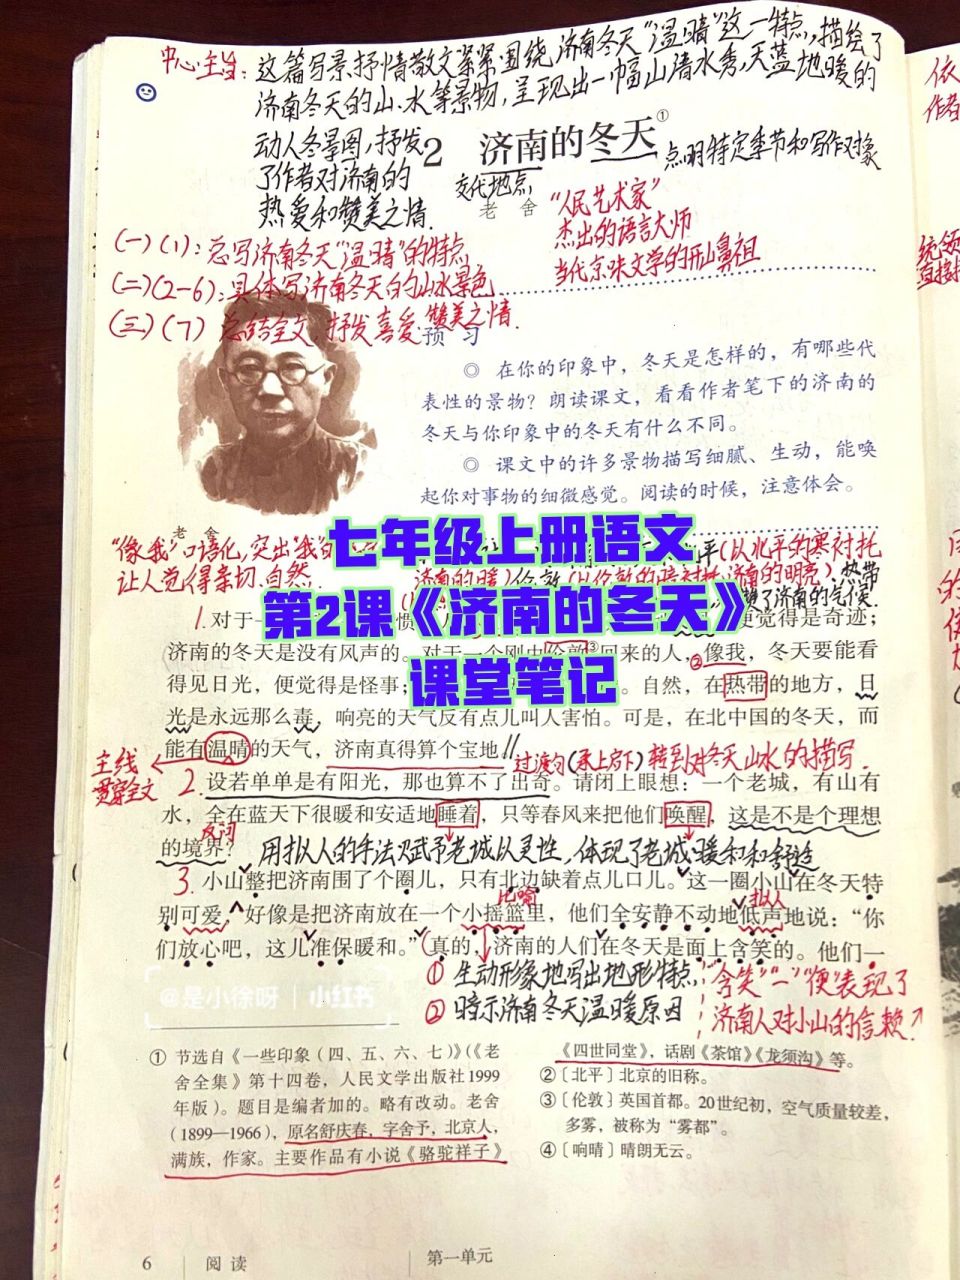 中心主旨:这篇写景抒情散文紧紧围绕济南冬天“温晴”这一特点,描绘了
济南冬天的山、水等景物,呈现出一幅山清水秀,天蓝地暖的
动人冬景图,抒发
了作者对济南的
热爱和赞美之情.
2 济南的冬天①
点明特定季节和写作对象
交代地点
老 舍
“人民艺术家”
杰出的语言大师
当代京味文学的开山鼻祖
(一)(1):总写济南冬天“温晴”的特点.
(二)(2-6):具体写济南冬天的山水景色
(三)(7) 总结全文,抒发喜爱赞美之情.
预 习
◎ 在你的印象中,冬天是怎样的,有哪些代
表性的景物?朗读课文,看看作者笔下的济南的
冬天与你印象中的冬天有什么不同。
◎ 课文中的许多景物描写细腻、生动,能唤
起你对事物的细微感觉。阅读的时候,注意体会。
老 舍
“像我”口语化,突出“我”的
让人觉得亲切.自然.
七年级上册语文
第2课《济南的冬天》
课堂笔记
平(以北平的寒衬托
济南的暖)伦敦(以伦敦的暗衬托济南的明亮)热带
了济南的气候.
1.对于一
惯
便觉得是奇迹;
济南的冬天是没有风声的。对于一个刚由伦敦③回来的人,②像我,冬天要能看
得见日光,便觉得是怪事;
。自然,在热带的地方,日
光是永远那么毒,响亮的天气反有点儿叫人害怕。可是,在北中国的冬天,而
能有温晴的天气,济南真得算个宝地
过渡句(承上启下)转到对冬天山水的描写.
主线
贯穿全文
2.设若单单是有阳光,那也算不了出奇。请闭上眼想:一个老城,有山有
水,全在蓝天下很暖和安适地睡着,只等春风来把他们唤醒,这是不是个理想
反问
的境界?
用拟人的手法赋予老城以灵性,体现了老城暖和和舒适
3.小山整把济南围了个圈儿,只有北边缺着点儿口儿。这一圈小山在冬天特
比喻
拟人
别可爱,好像是把济南放在一个小摇篮里,他们全安静不动地低声地说:“你
们放心吧,这儿准保暖和。”真的,济南的人们在冬天是面上含笑的。他们一
① 生动形象地写出地形特点,
② 暗示济南冬天温暖原因
“含笑”“一”“便”表现了
济南人对小山的信赖
@是小徐呀 | 小红书
① 节选自《一些印象(四、五、六、七)》(《老
舍全集》第十四卷,人民文学出版社1999
年版)。题目是编者加的。略有改动。老舍
(1899—1966),原名舒庆春,字舍予,北京人,
满族,作家。主要作品有小说《骆驼祥子》
《四世同堂》,话剧《茶馆》《龙须沟》等。
②〔北平〕北京的旧称。
③〔伦敦〕英国首都。20世纪初,空气质量较差,
多雾,被称为“雾都”。
④〔响晴〕晴朗无云。
6 阅读 第一单元
依
作者
统领
直接